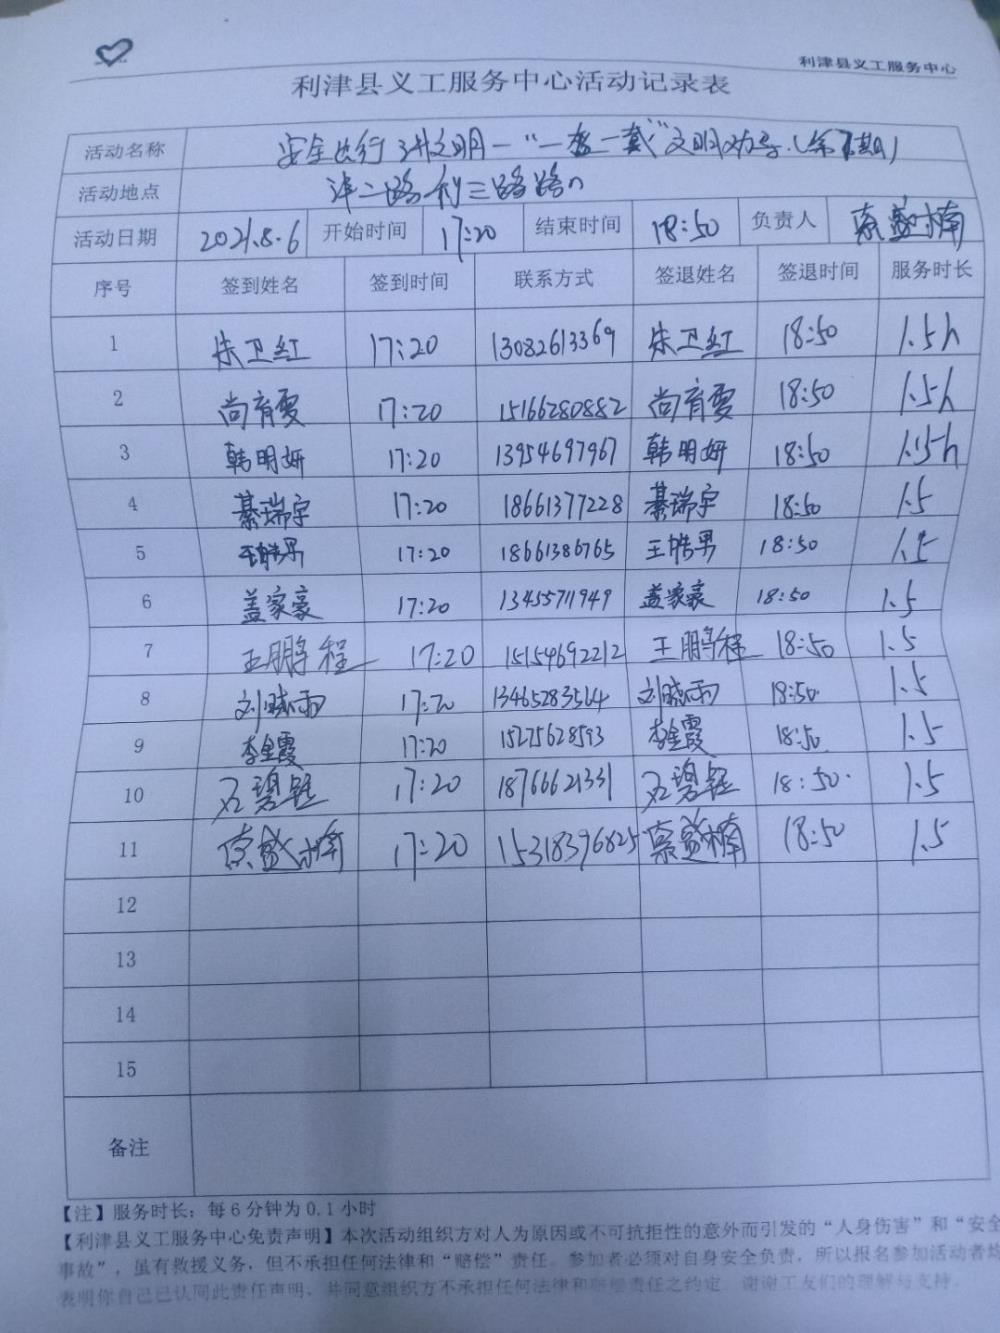 利津县义工服务中心
利津县义工服务中心活动记录表
活动名称 安全出行 讲文明—“一盔一戴”文明劝导(第 期)
活动地点 津二路利三路路口
活动日期 2021.8.6 开始时间 17:20 结束时间 18:50 负责人 盛楠
序号 签到姓名 签到时间 联系方式 签退姓名 签退时间 服务时长
1 朱卫红 17:20 13082613369 朱卫红 18:50 1.5h
2 尚育雯 17:20 15166280882 尚育雯 18:50 1.5h
3 韩明妍 17:20 13954697967 韩明妍 18:50 1.5h
4 綦瑞宇 17:20 18661377228 綦瑞宇 18:50 1.5
5 王皓男 17:20 18661386765 王皓男 18:50 1.5
6 盖家豪 17:20 13455711949 盖家豪 18:50 1.5
7 王鹏程 17:20 15154692212 王鹏程 18:50 1.5
8 刘晓雨 17:20 13465283564 刘晓雨 18:50 1.5
9 李金霞 17:20 15275628593 李金霞 18:50 1.5
10 石碧钰 17:20 18766621331 石碧钰 18:50 1.5
11 盛楠 17:20 15318396825 盛楠 18:50 1.5
12
13
14
15
备注
【注】服务时长：每6分钟为0.1小时
【利津县义工服务中心免责声明】本次活动组织方对人为原因或不可抗拒性的意外而引发的“人身伤害”和“安全
事故”，虽有救援义务，但不承担任何法律和“赔偿”责任。参加者必须对自身安全负责，所以报名参加活动者均
表明你自己已认同此责任声明，并同意组织方不承担任何法律和赔偿责任之约定。谢谢工友们的理解与支持。